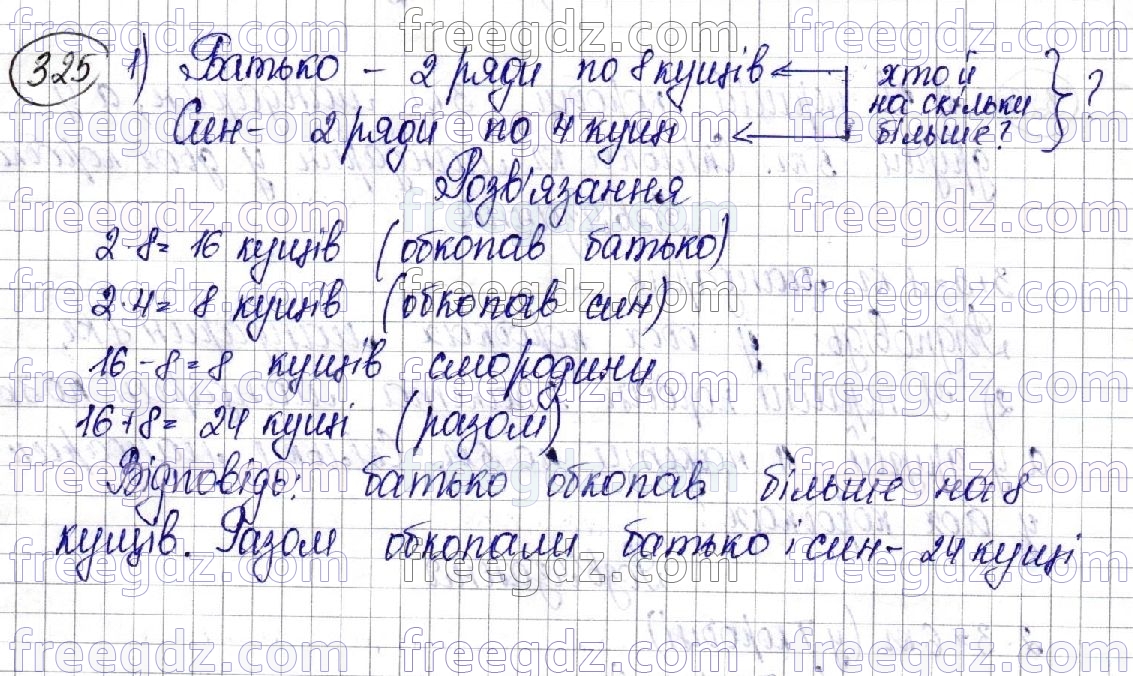 325 1) Батько - 2 ряди по 8 кущів хто й
на скільки
Син - 2 ряди по 4 кущі більше? } ?
Розв'язання
2·8= 16 кущів (обкопав батько)
2·4= 8 кущів (обкопав син)
16-8=8 кущів смородини
16+8= 24 кущі (разом)
Відповідь: батько обкопав більше на 8
кущів. Разом обкопали батько і син - 24 кущі
freegdz.com